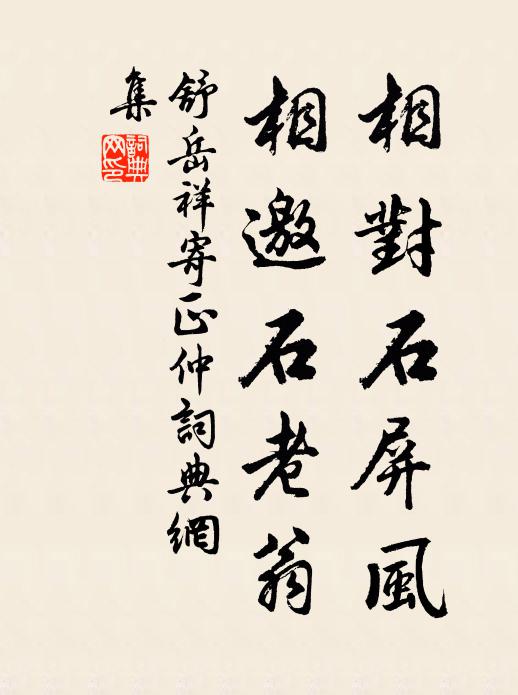 相對石屏風
相邀石老翁
舒岳祥寄正仲詞典網
集
詞典網印